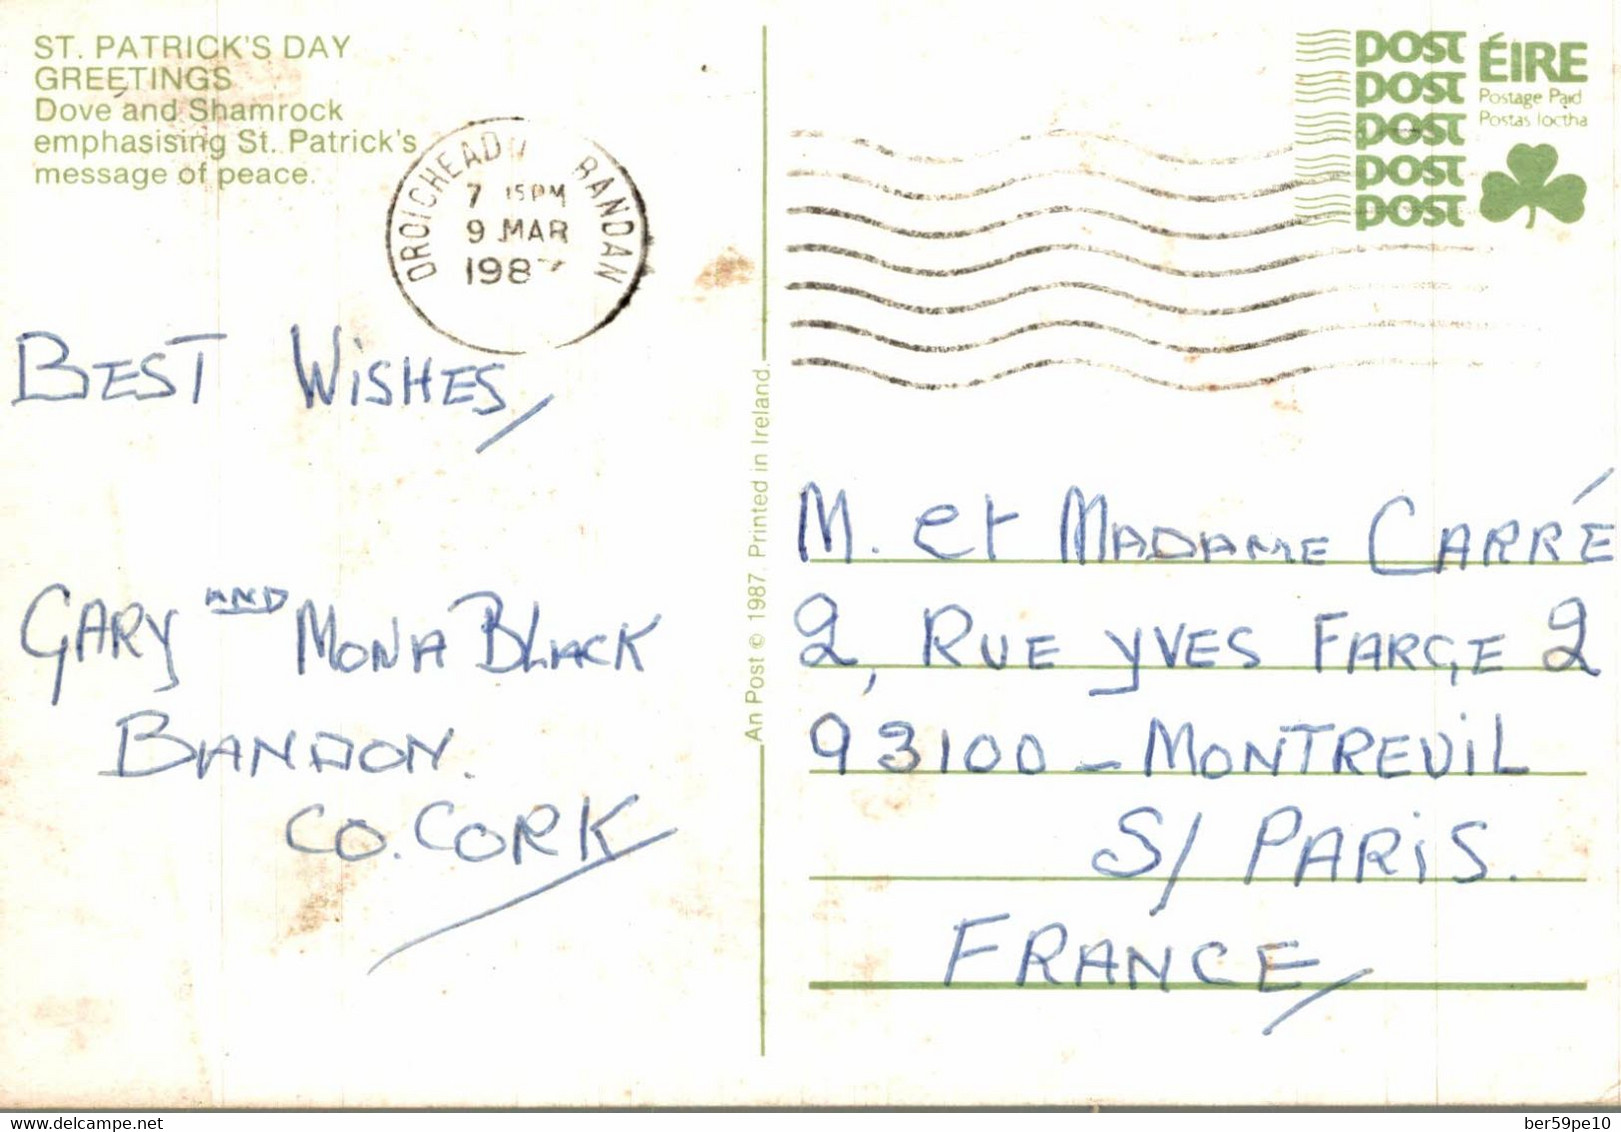 ST. PATRICK'S DAY
GREETINGS
Dove and Shamrock
emphasising St. Patrick's
message of peace.
DROICHEAD BANDAN
7 15PM
9 MAR
1987
BEST WISHES
GARY AND MONA BLACK
BANDON.
CO. CORK
An Post © 1987. Printed in Ireland.
POST
POST
POST
POST
POST
ÉIRE
Postage Paid
Postas Íoctha
M. et MADAME CARRÉ
2, RUE YVES FARGE 2
93100 - MONTREUIL
S/ PARIS.
FRANCE
ber59pe10